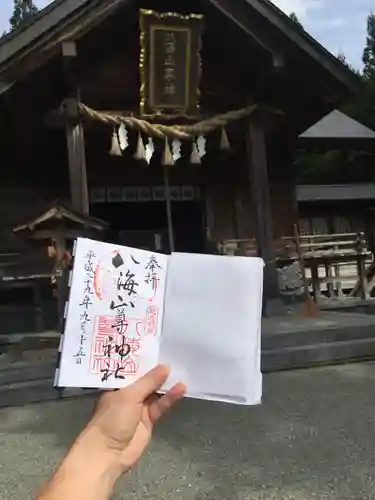 八海山尊神
奉拝
八海山尊神社
平成二十九年九月十五日